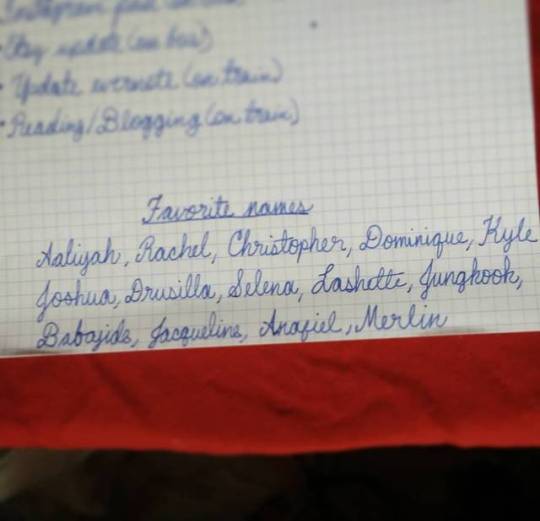 Instagram
• Etsy update (on bus)
• Update evernote (on train)
• Reading/Blogging (on train)
Favorite names
Aaliyah, Rachel, Christopher, Dominique, Kyle
Joshua, Drusilla, Selena, Lashette, Jungkook,
Babajide, Jacqueline, Anafiel, Merlin